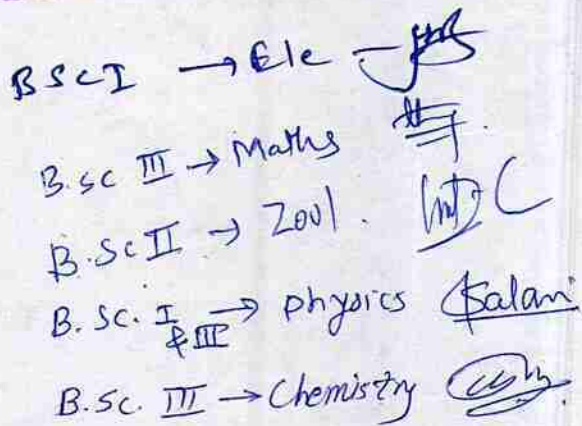 B SC I → Ele –
B.sc III → Maths
B.Sc II → Zool.
B.Sc. I & III → physics Salani
B.Sc. III → Chemistry